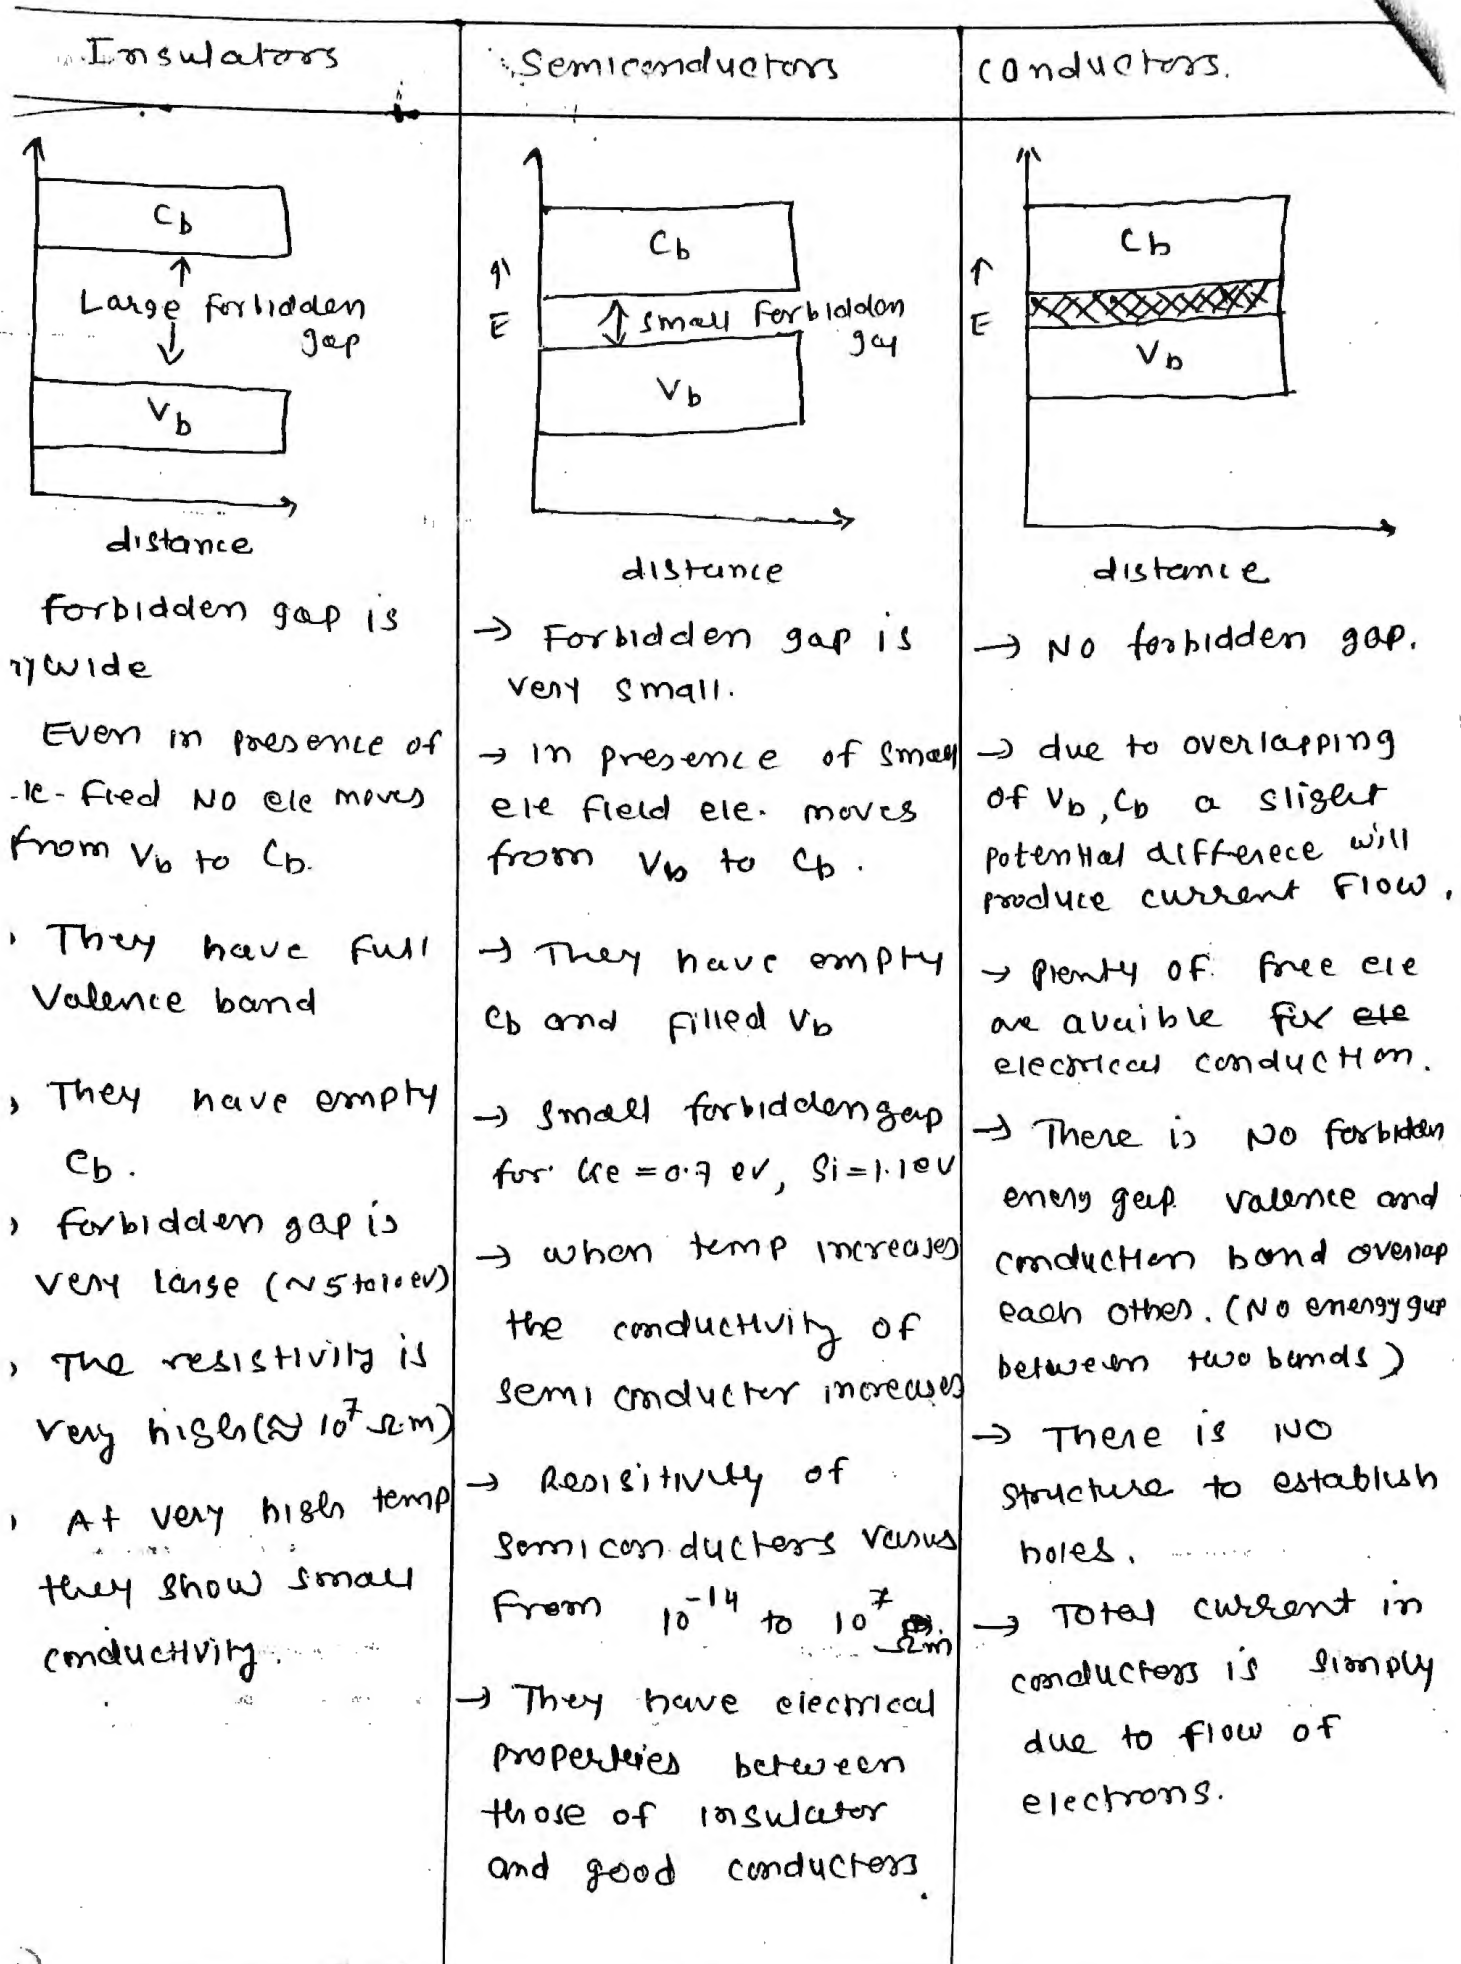 Insulators
Cb
Large forbidden
gap
Vb
distance
forbidden gap is
wide
Even in presence of
-le- fied No ele moves
from Vb to Cb.
They have full
Valence band
They have empty
Cb.
forbidden gap is
very large (~5 to 10 ev)
The resistivity is
very high (≈ 10^7 Ω·m)
At very high temp
they show small
conductivity.
Semiconductors
Cb
E
small Forbidden
gap
Vb
distance
→ Forbidden gap is
very small.
→ In presence of small
ele field ele. moves
from Vb to Cb.
→ They have empty
Cb and filled Vb
→ small forbidden gap
for Ge = 0.7 ev, Si = 1.1 eV
→ when temp increases
the conductivity of
semi conductor increases
→ Resisitivity of
semiconductors varies
From 10^-14 to 10^7
Ωm
→ They have electrical
properties between
those of insulator
and good conductors.
conductors.
Cb
E
Vb
distance
→ No forbidden gap.
→ due to overlapping
of Vb, Cb a slight
potential differece will
produce current Flow.
→ Plenty of free ele
are avaible for ele
electrical conduction.
→ There is No forbidden
energ gap. valence and
conduction band overlap
each other. (No energy gap
between two bands)
→ There is NO
structure to establish
holes.
→ Total current in
conductors is simply
due to flow of
electrons.